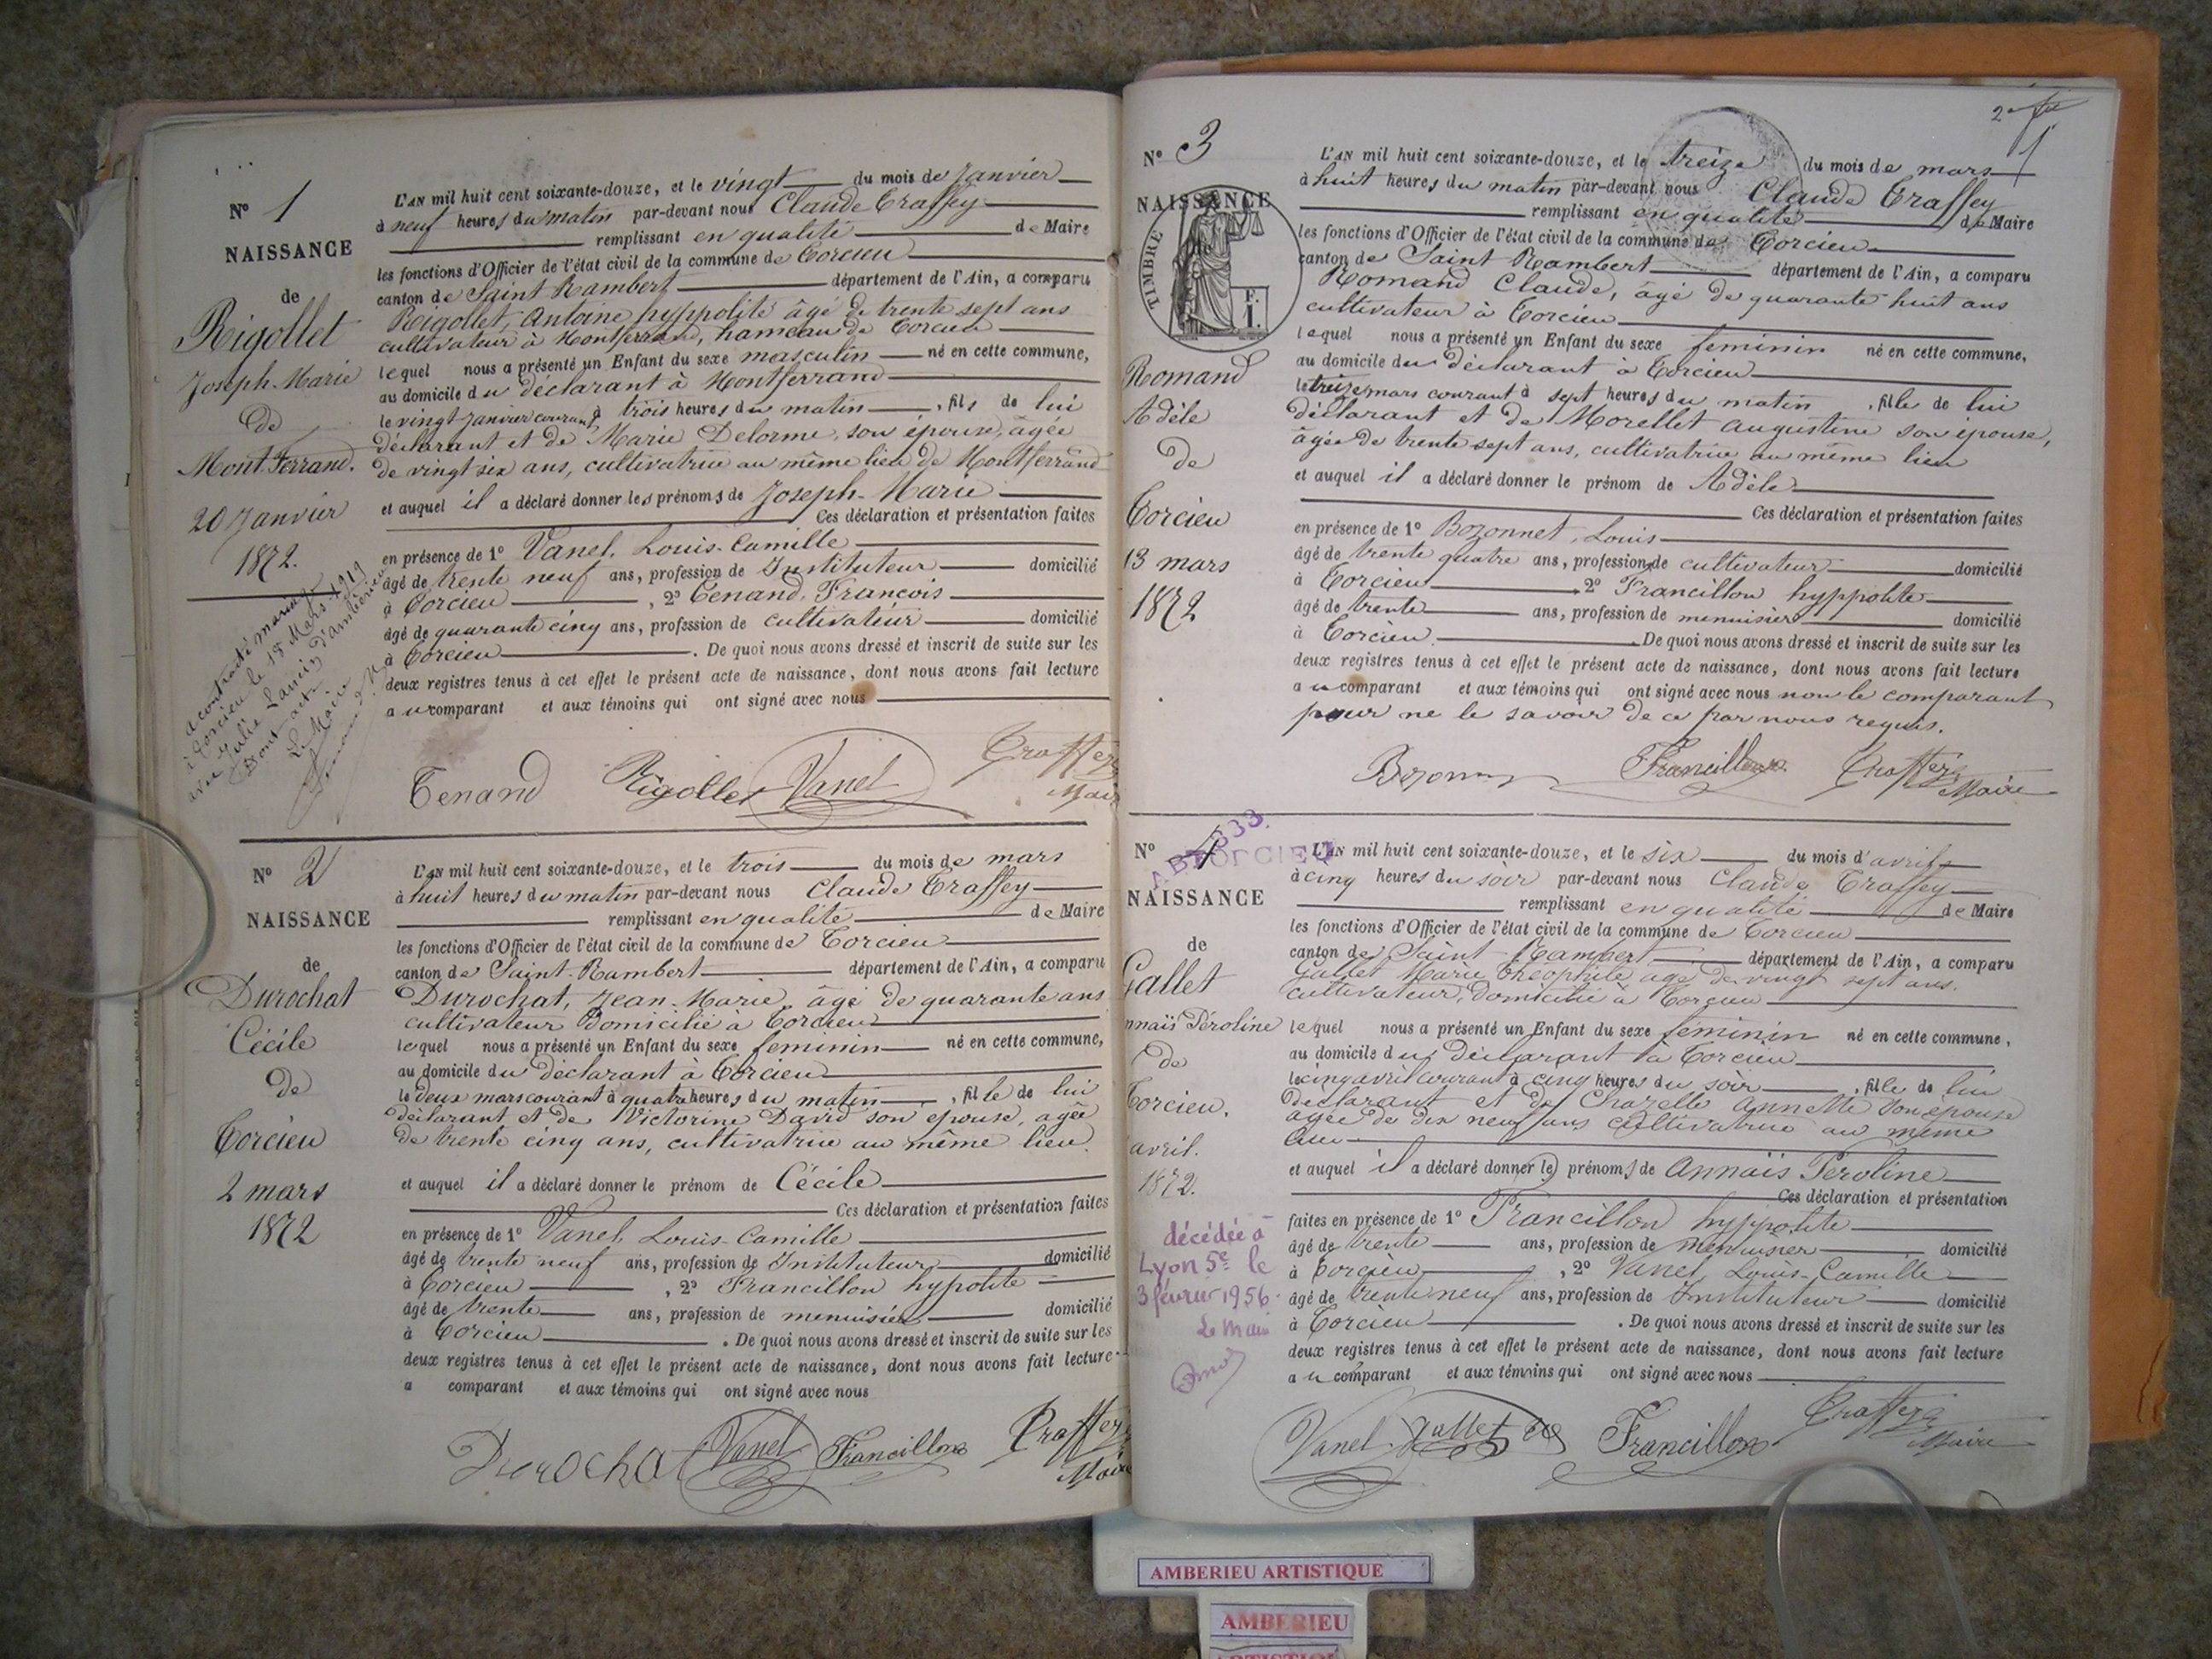 N° 1
NAISSANCE
de
Rigollet
Joseph-Marie
de
Mont Ferrand.
20 Janvier
1872.
a contracté mariage
à Torcieu le 18 Mars 1919
avec Julie
d'Ambérieu
Dont acte
Le Maire
L'AN mil huit cent soixante-douze, et le vingt du mois de Janvier
à neuf heures du matin par-devant nous Claude Traffey
remplissant en qualité de Maire
les fonctions d'Officier de l'état civil de la commune de Torcieu
canton de Saint Rambert département de l'Ain, a comparu
Rigollet, Antoine hyppolite âgé de trente sept ans
cultivateur à Montferrand, hameau de Torcieu
lequel nous a présenté un Enfant du sexe masculin né en cette commune,
au domicile du déclarant à Montferrand
le vingt Janvier courant, à trois heures du matin, fils de lui
déclarant et de Marie Delorme, son épouse, âgée
de vingt six ans, cultivatrice au même lieu de Montferrand
et auquel il a déclaré donner les prénoms de Joseph-Marie
Ces déclaration et présentation faites
en présence de 1° Vanel, Louis-Camille
âgé de trente neuf ans, profession de Instituteur domicilié
à Torcieu, 2° Tenand, François
âgé de quarante cinq ans, profession de cultivateur domicilié
à Torcieu. De quoi nous avons dressé et inscrit de suite sur les
deux registres tenus à cet effet le présent acte de naissance, dont nous avons fait lecture
au comparant et aux témoins qui ont signé avec nous
Tenand Rigollet Vanel Traffey
Maire
N° 2
NAISSANCE
de
Durochat
Cécile
de
Torcieu
2 mars
1872
L'AN mil huit cent soixante-douze, et le trois du mois de mars
à huit heures du matin par-devant nous Claude Traffey
remplissant en qualité de Maire
les fonctions d'Officier de l'état civil de la commune de Torcieu
canton de Saint-Rambert département de l'Ain, a comparu
Durochat, Jean-Marie, âgé de quarante ans
cultivateur domicilié à Torcieu
lequel nous a présenté un Enfant du sexe féminin né en cette commune,
au domicile du déclarant à Torcieu
le deux mars courant à quatre heures du matin, fille de lui
déclarant et de Victorine David son épouse, agée
de trente cinq ans, cultivatrice au même lieu.
et auquel il a déclaré donner le prénom de Cécile
Ces déclaration et présentation faites
en présence de 1° Vanel, Louis-Camille
âgé de trente neuf ans, profession de Instituteur domicilié
à Torcieu, 2° Francillon hypolite
âgé de trente ans, profession de menuisier domicilié
à Torcieu. De quoi nous avons dressé et inscrit de suite sur les
deux registres tenus à cet effet le présent acte de naissance, dont nous avons fait lecture
a comparant et aux témoins qui ont signé avec nous
Durochat Vanel Francillon Traffey
Maire
N° 3
NAISSANCE
TIMBRE
F.
1.
Romand
Adèle
de
Torcieu
13 mars
1872
L'AN mil huit cent soixante-douze, et le treize du mois de mars
à huit heures du matin par-devant nous Claude Traffey
remplissant en qualité de Maire
les fonctions d'Officier de l'état civil de la commune de Torcieu
canton de Saint Rambert département de l'Ain, a comparu
Romand Claude, âgé de quarante huit ans
cultivateur à Torcieu
lequel nous a présenté un Enfant du sexe féminin né en cette commune,
au domicile du déclarant à Torcieu
le treize mars courant à sept heures du matin, fille de lui
déclarant et de Morellet Augustine son épouse,
âgée de trente sept ans, cultivatrice au même lieu
et auquel il a déclaré donner le prénom de Adèle
Ces déclaration et présentation faites
en présence de 1° Bozonnet, Louis
âgé de trente quatre ans, profession de cultivateur domicilié
à Torcieu 2° Francillon hyppolite
âgé de trente ans, profession de menuisier domicilié
à Torcieu. De quoi nous avons dressé et inscrit de suite sur les
deux registres tenus à cet effet le présent acte de naissance, dont nous avons fait lecture
au comparant et aux témoins qui ont signé avec nous non le comparant
pour ne le savoir de ce par nous requis.
Francillon Traffey
Maire
N° 4
TORCIEU
NAISSANCE
de
Gallet
nnaïs Péroline
de
Torcieu.
avril.
1872.
décédée à
Lyon 5e le
3 février 1956.
Le Maire
L'AN mil huit cent soixante-douze, et le six du mois d'avril
à cinq heures du soir par-devant nous Claude Traffey
remplissant en qualité de Maire
les fonctions d'Officier de l'état civil de la commune de Torcieu
canton de Saint Rambert département de l'Ain, a comparu
Gallet Marie Théophile âgé de vingt sept ans.
cultivateur, domicilié à Torcieu
lequel nous a présenté un Enfant du sexe féminin né en cette commune,
au domicile du déclarant à Torcieu
le cinq avril courant à cinq heures du soir, fille de lui
déclarant et de Chazelle Annette son épouse
agée de dix neuf ans cultivatrice au même
lieu
et auquel il a déclaré donner les prénoms de Annaïs Péroline
Ces déclaration et présentation
faites en présence de 1° Francillon hyppolite
âgé de trente ans, profession de menuisier domicilié
à Torcieu, 2° Vanel, Louis-Camille
âgé de trente neuf ans, profession de Instituteur domicilié
à Torcieu. De quoi nous avons dressé et inscrit de suite sur les
deux registres tenus à cet effet le présent acte de naissance, dont nous avons fait lecture
au comparant et aux témoins qui ont signé avec nous
Vanel Gallet Francillon Traffey
Maire
AMBERIEU ARTISTIQUE
AMBERIEU
ARTISTIQUE